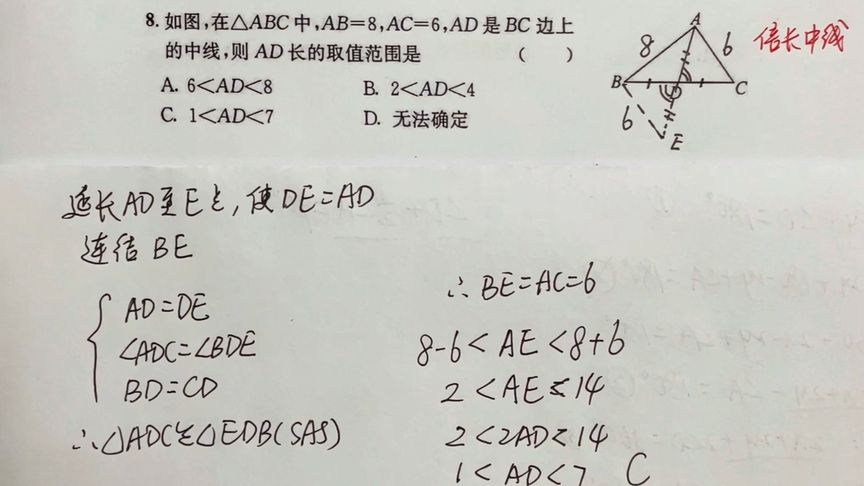 8. 如图,在△ABC中,AB=8,AC=6,AD是BC边上
的中线,则AD长的取值范围是 ( )
A. 6<AD<8 B. 2<AD<4
C. 1<AD<7 D. 无法确定
A
8 6
B D C
6
E
倍长中线
延长AD至E点,使DE=AD
连结BE
AD=DE
∠ADC=∠BDE
BD=CD
∴△ADC≌△EDB(SAS)
∴BE=AC=6
8-6<AE<8+6
2<AE<14
2<2AD<14
1<AD<7 C